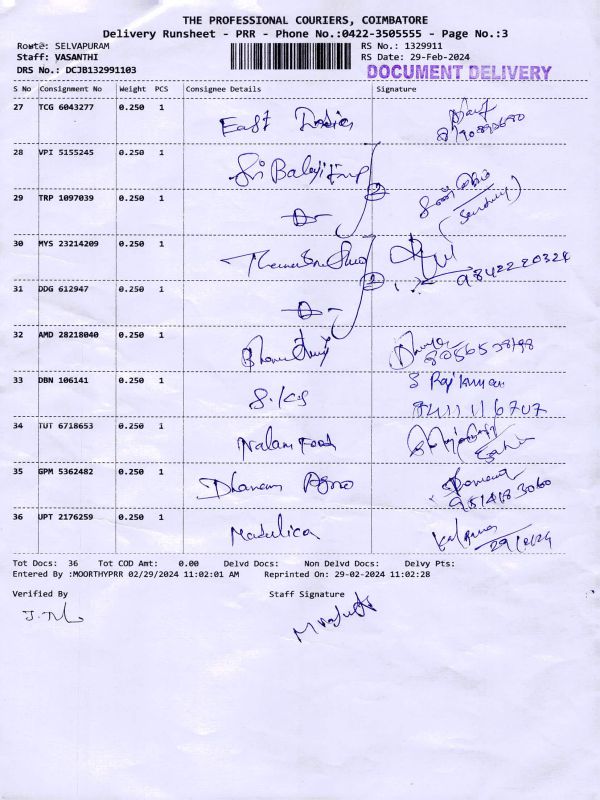 THE PROFESSIONAL COURIERS, COIMBATORE
Delivery Runsheet - PRR - Phone No.:0422-3505555 - Page No.:3
Route: SELVAPURAM
RS No.: 1329911
Staff: VASANTHI
RS Date: 29-Feb-2024
DRS No.: DCJB132991103
DOCUMENT DELIVERY
S No Consignment No Weight PCS Consignee Details Signature
27 TCG 6043277 0.250 1 East India
28 VPI 5155245 0.250 1 Sri Balaji Emp
29 TRP 1097039 0.250 1
30 MYS 23214209 0.250 1 9842220324
31 DDG 612947 0.250 1
32 AMD 28218040 0.250 1
33 DBN 106141 0.250 1 S.KS S Raj Kumar
8411116707
34 TUT 6718653 0.250 1 Nalam Food
35 GPM 5362482 0.250 1 Dhanam Agro
9514683060
36 UPT 2176259 0.250 1 Madulica
29/2/24
Tot Docs: 36 Tot COD Amt: 0.00 Delvd Docs: Non Delvd Docs: Delvy Pts:
Entered By :MOORTHYPRR 02/29/2024 11:02:01 AM Reprinted On: 29-02-2024 11:02:28
Verified By Staff Signature